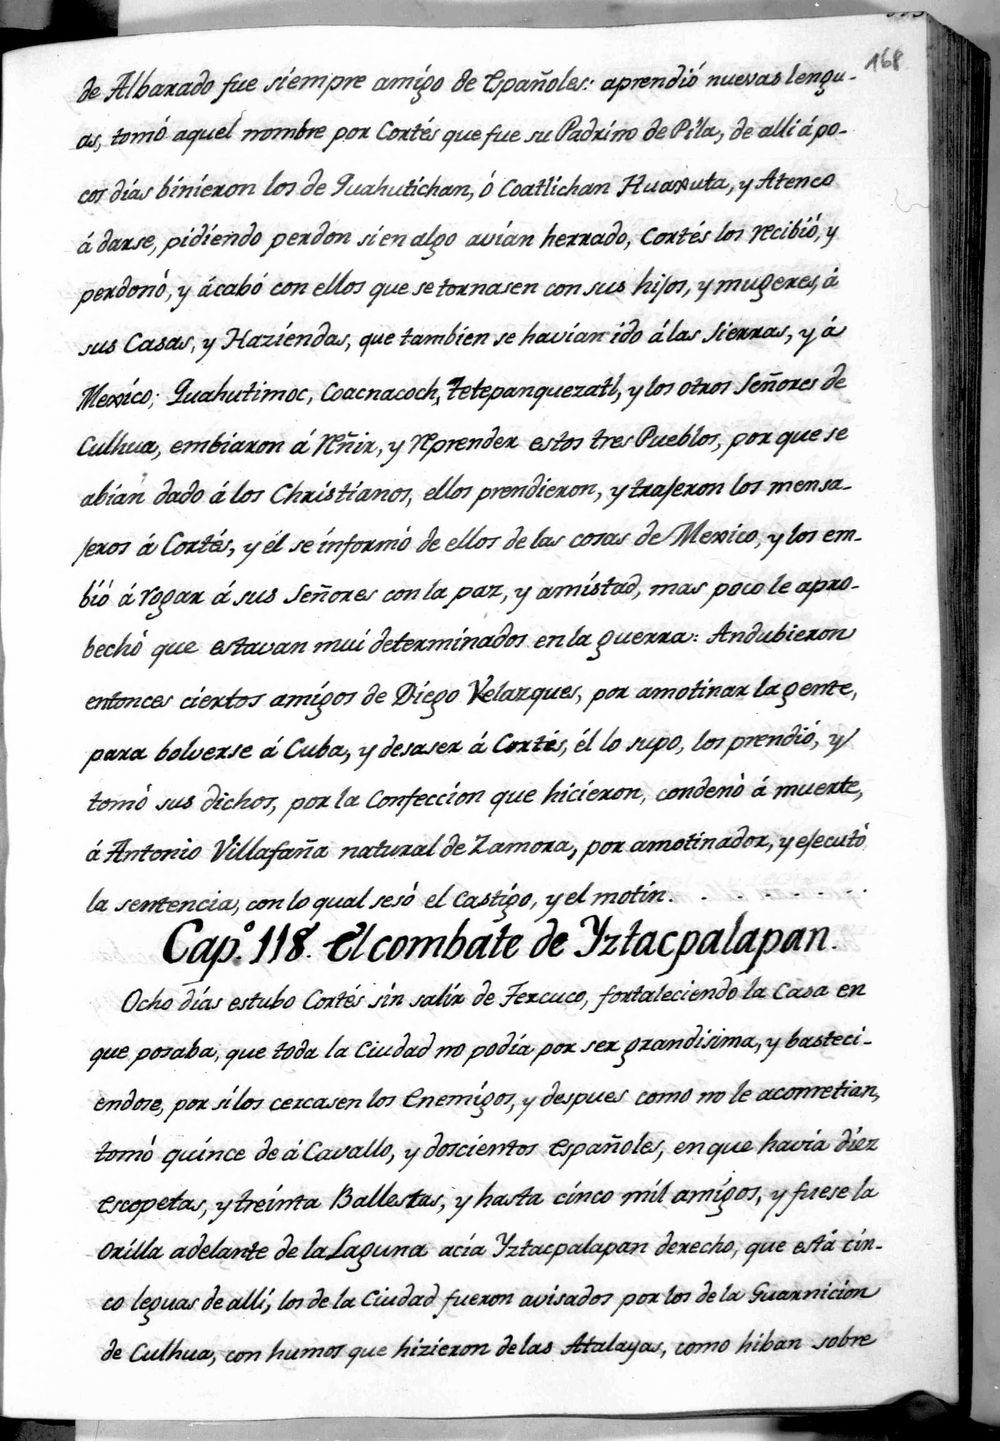 168
de Albarado fue siempre amigo de Españoles: aprendió nuevas lengu-
as, tomó aquel nombre por Cortés que fue su Padrino de Pila, de alli á po-
cos dias binieron los de Quahutichan, ó Coatlichan Huaxuta, y Atenco
á darse, pidiendo perdon si en algo avian herrado, Cortés los recibió, y
perdonó, y ácabó con ellos que se tornasen con sus hijos, y mugeres, á
sus Casas, y Haziendas, que tambien se havian ido á las Sierras, y á
Mexico; Quahutimoc, Coacnacoch, Tetepanquezatl, y los otros Señores de
Culhua, embiaron á Reñir, y Reprender estos tres Pueblos, por que se
abian dado á los Christianos, ellos prendieron, y trajeron los mensa-
jeros á Cortés, y él se informó de ellos de las cosas de Mexico, y los em-
bió á rogar á sus Señores con la paz, y amistad, mas poco le apro-
bechó que estavan mui determinados en la guerra: Andubieron
entonces ciertos amigos de Diego Velazques, por amotinar la gente,
para bolverse á Cuba, y desaser á Cortés, él lo supo, los prendió, y
tomó sus dichos, por la Confeccion que hicieron, condenó á muerte,
á Antonio Villafaña natural de Zamora, por amotinador, y ejecutó
la sentencia, con lo qual sesó el Castigo, y el motin. . . . . . .
Cap.º 118. El combate de Yztacpalapan.
Ocho dias estubo Cortés sin salir de Tercuco, fortaleciendo la Casa en
que posaba, que toda la Ciudad no podia por ser grandisima, y basteci-
endose, por si los cercasen los Enemigos, y despues como no le acometian,
tomó quince de á Cavallo, y doscientos Españoles, en que havia diez
escopetas, y treinta Ballestas, y hasta cinco mil amigos, y fuese la
orilla adelante de la Laguna acia Yztacpalapan derecho, que está cin-
co leguas de alli, los de la Ciudad fueron avisados por los de la Guarnicion
de Culhua, con humos que hizieron de las Atalayas, como hiban sobre